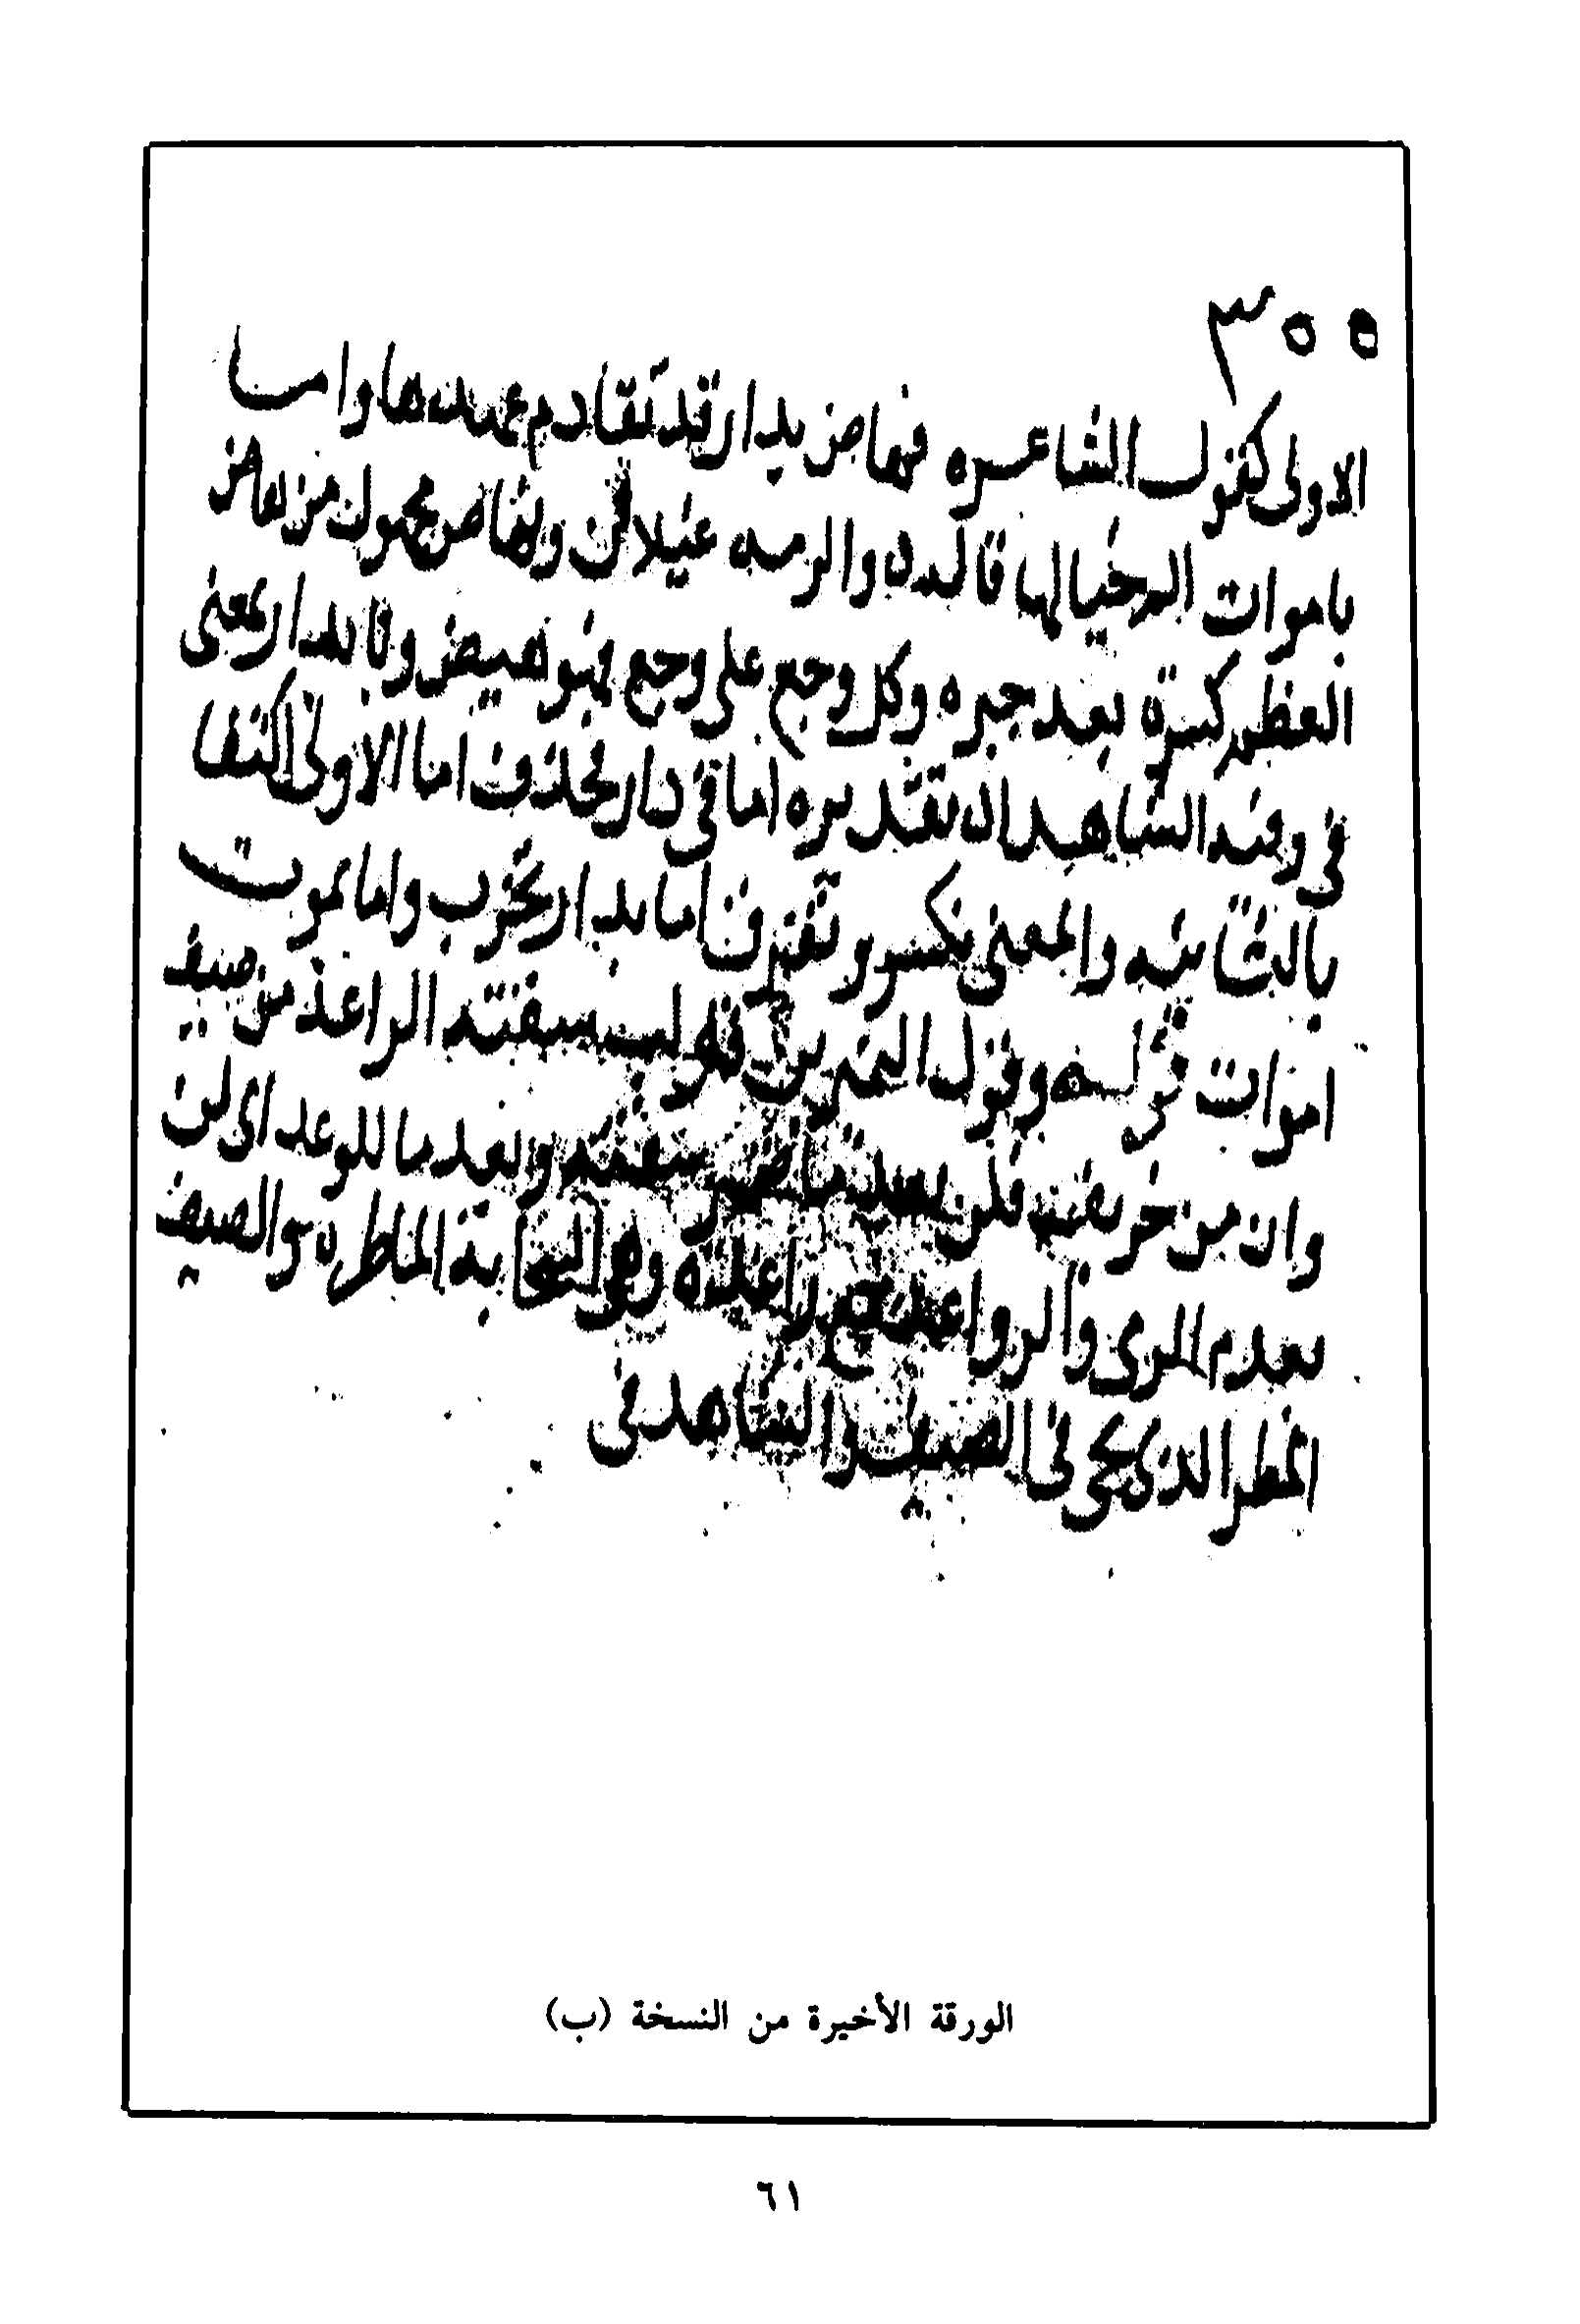 ٣٥٥
الاولى كقول الشاعره فهاض بدار قد تقادم عهدها واما
باموات الم خيالها قاله ذو الرمه غيلان ويهاض مجهول من هاض
العظم كسره بعد جبره وكل وجع على وجع فهو هيض وبا بدار بمعنى
في وفيه الشاهد ان تقديره اما في دار فحذف اما الاولى اكتفا
بالثانيه والمعنى يكسر و اما بدار يخرب واما بموت
اموات قوله وقول النمر بن قوله سقته الرواعد من صيف
وان من خريف فلن يعدما سقته ويعدما للوعد اي لن
يعدم الري والرواعد جمع راعده وهو السحابة الماطره والصيف
المطر الذي يجي في الصيف والشاهد في
الورقة الأخيرة من النسخة (ب)
٦١